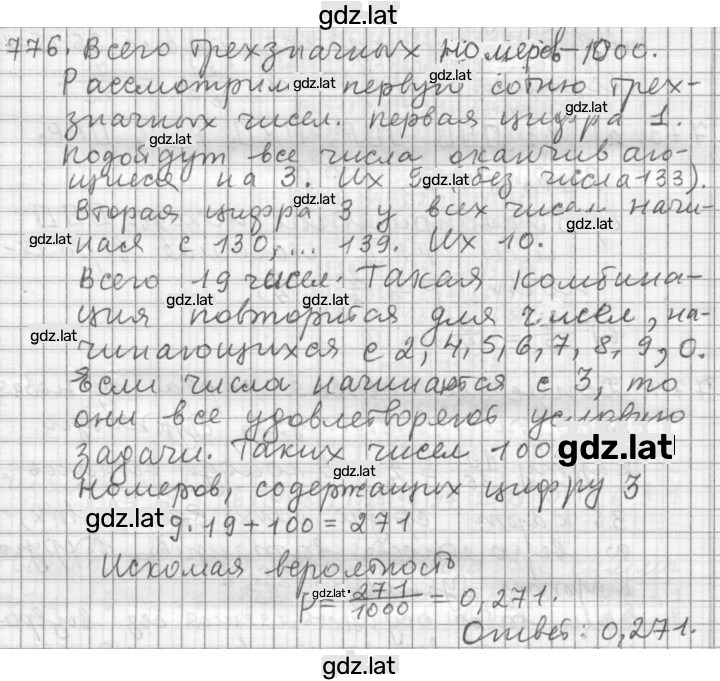 gdz.lat
776. Всего трехзначных номеров - 1000.
Рассмотрим gdz.lat первую gdz.lat сотню трех-
значных чисел. первая цифра 1. gdz.lat
gdz.lat
подойдут все числа оканчиваю-
щиеся на 3. Их 9 gdz.lat (без числа 133).
Вторая цифра 3 у всех чисел начи-
gdz.lat gdz.lat
gdz.lat ная с 130, ... 139. Их 10.
Всего 19 чисел. Такая комбина-
gdz.lat gdz.lat
ция повторится для чисел, на-
gdz.lat
чинающихся с 2, 4, 5, 6, 7, 8, 9, 0.
Если числа начинаются с 3, то
они все удовлетворяют условию
задачи. Таких чисел 100 gdz.lat
gdz.lat
Номеров, содержащих цифру 3
gdz.lat 9·19+100=271
Искомая вероятность
P= gdz.lat 271/1000 = 0,271.
Ответ: 0,271.
gdz.lat